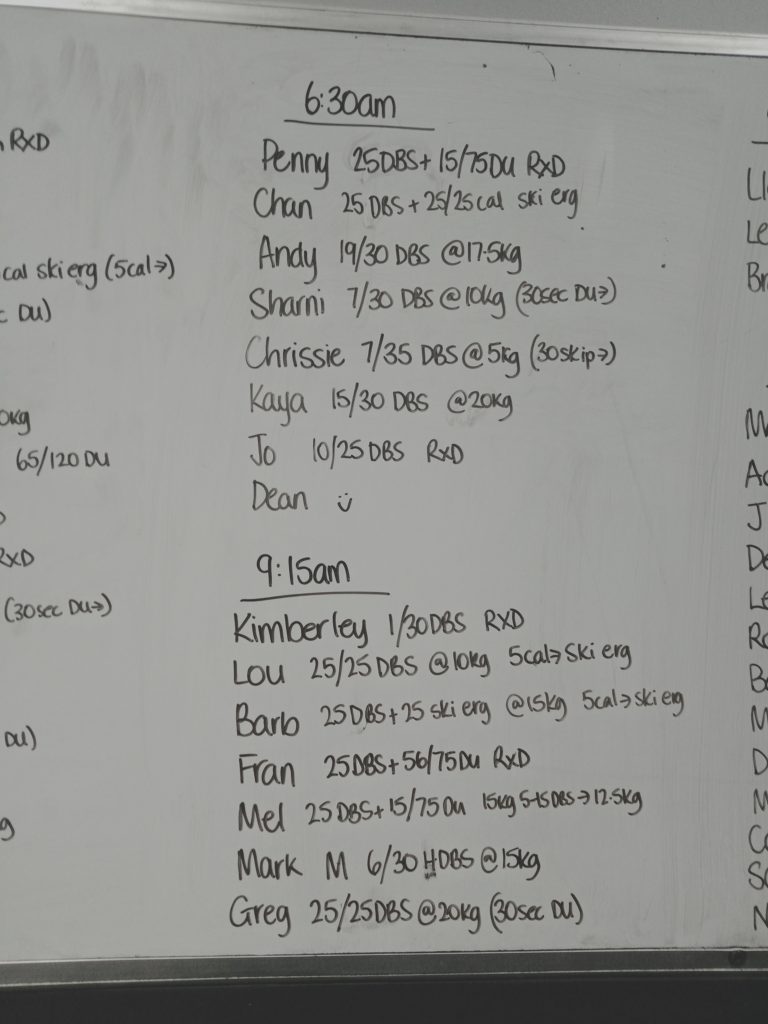 RXD
cal ski erg (5cal→)
DU)
65/120 DU
RXD
(30sec DU→)
DU)
6:30am
Penny 25DBS+ 15/75DU RXD
Chan 25 DBS + 25/25 cal ski erg
Andy 19/30 DBS @17.5kg
Sharni 7/30 DBS @10kg (30sec DU→)
Chrissie 7/35 DBS @5kg (30skip→)
Kaya 15/30 DBS @20kg
Jo 10/25 DBS RXD
Dean ü
9:15am
Kimberley 1/30DBS RXD
Lou 25/25 DBS @10kg 5cal→ski erg
Barb 25DBS+25 ski erg @15kg 5cal→ski erg
Fran 25DBS+56/75DU RXD
Mel 25 DBS+ 15/75DU 15kg 5-15DBS→12.5kg
Mark M 6/30 HDBS @15kg
Greg 25/25DBS @20kg (30sec DU)